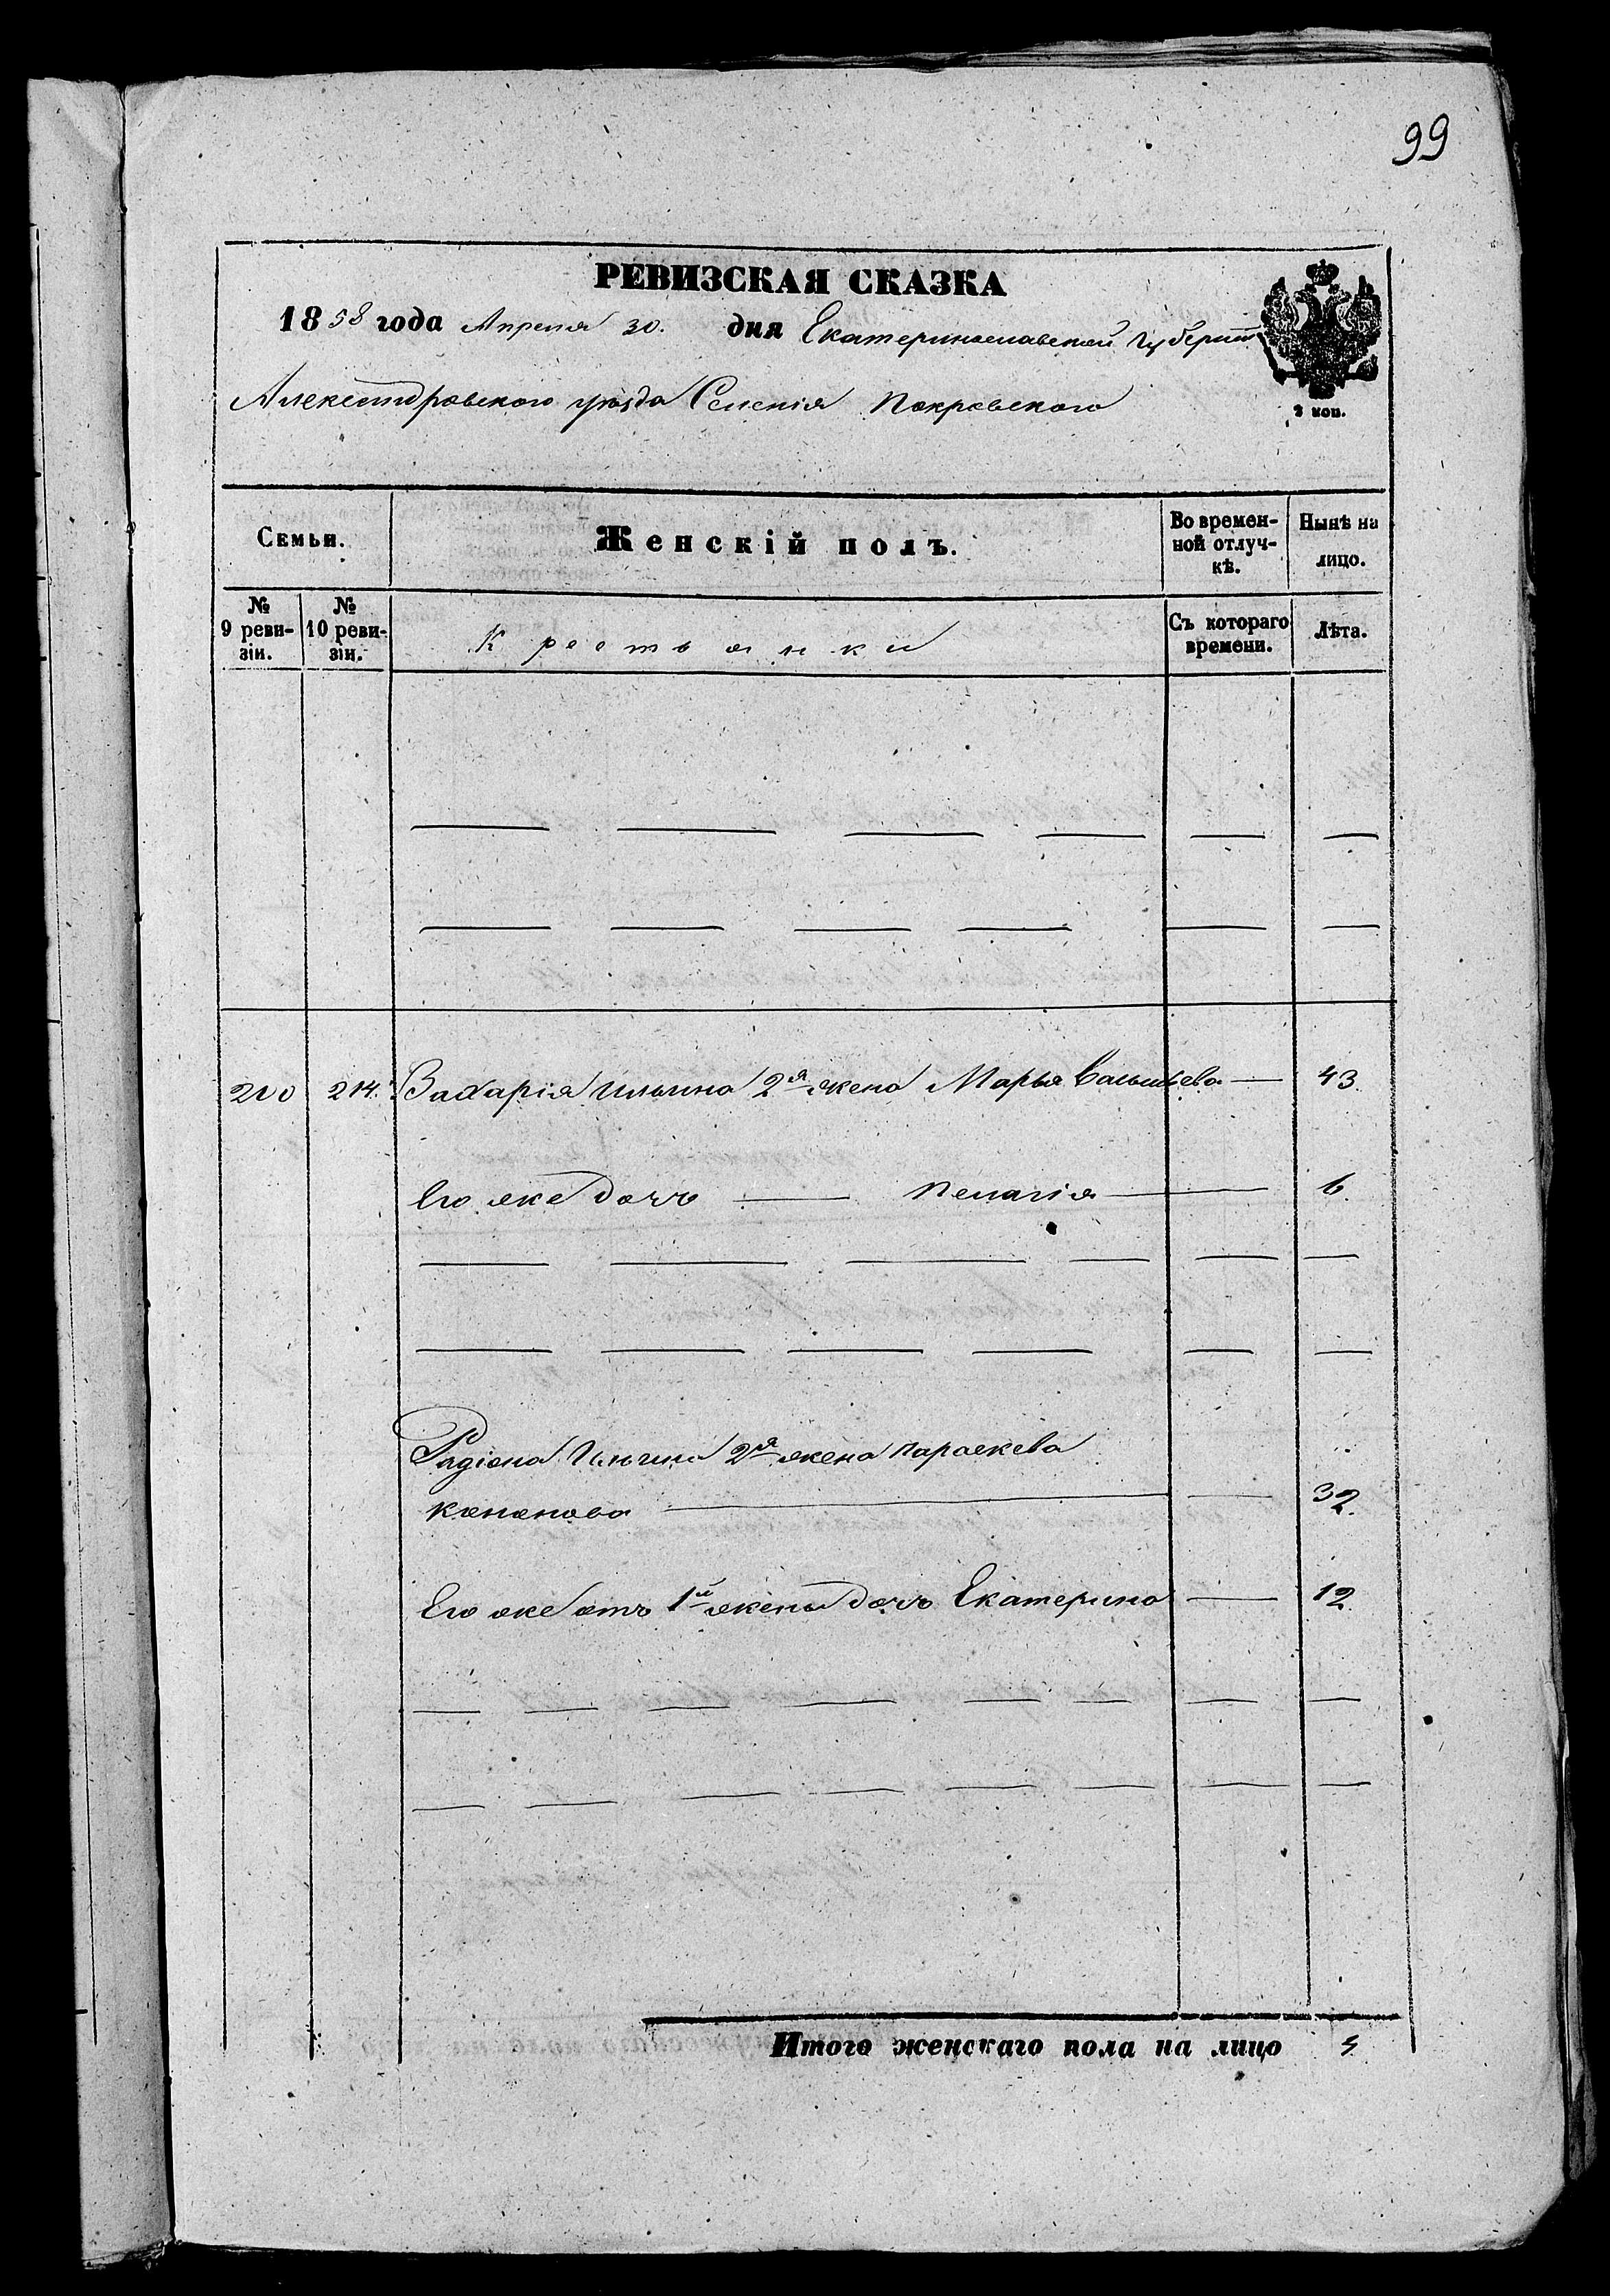 99
РЕВИЗСКАЯ СКАЗКА
1858 года Апреля 30. дня Екатеринославской Губерніи
Александровского уѣзда Селенія Покровского
2 коп.
Семьи. Женскій полъ. Во времен-ной отлуч-кѣ. Нынѣ на лицо.
№ 9 реви-зіи. № 10 реви-зіи. Крестьянки Съ котораго времени. Лѣта.
210 214. Захарія Ильина 2я жена Марья Васильева — 43
Его же дочь — Пелагія — 6.
Радіона Ильина 2я жена Параскева
Кононова — 32.
Его же отъ 1й жены дочь Екатерина — 12.
Итого женскаго пола на лицо 4